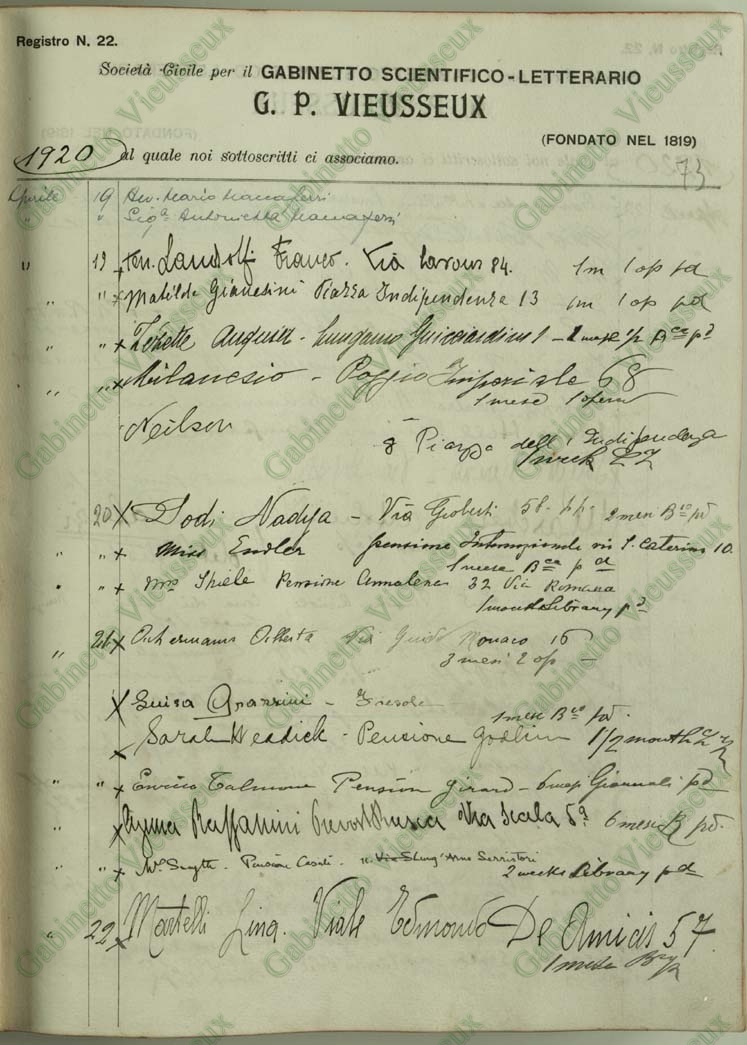 Registro N. 22.
Società Civile per il GABINETTO SCIENTIFICO-LETTERARIO
G. P. VIEUSSEUX
(FONDATO NEL 1819)
1920 al quale noi sottoscritti ci associamo.
73
Aprile 19 Avv. Mario
" " Sigª Antonietta
" 19 x Landolfi Franco. Via Cavour 84. 1m 1 op pd
" " x Matilde Gianesini Piazza Indipendenza 13 1m 1 op pd
" " x Augusta - Lungarno Guicciardini 1 -
" " x Milanesio - Poggio Imperiale 68
1 mese 1 opera
Neilson
8 Piazza dell'Indipendenza
1 week
20 x Dodi Nadya - Via Gioberti 58. pp. 2 mesi pd
" " x Miss Endler pensione Internazionale via S. Caterina 10.
1 mese pd
" " x Mrs Thiele Pensione Annalena 32 Via Romana
1 month Library pd
" 21 x Via Guido Monaco 16
3 mesi 2 op -
x Luisa Grassini - Fiesole
1 mese pd.
x Sarah - Pensione Godkin 1/2 month
" " x Enrico Talmone Pension Girard - 6 mesi Giornali pd
" x Raffanini Via Scala 59 6 mesi pd.
" " x Pensione Casali - Lung'Arno Serristori
2 weeks Library pd
" 22 x Martelli Lina. Viale Edmondo De Amicis 57.
1 mese